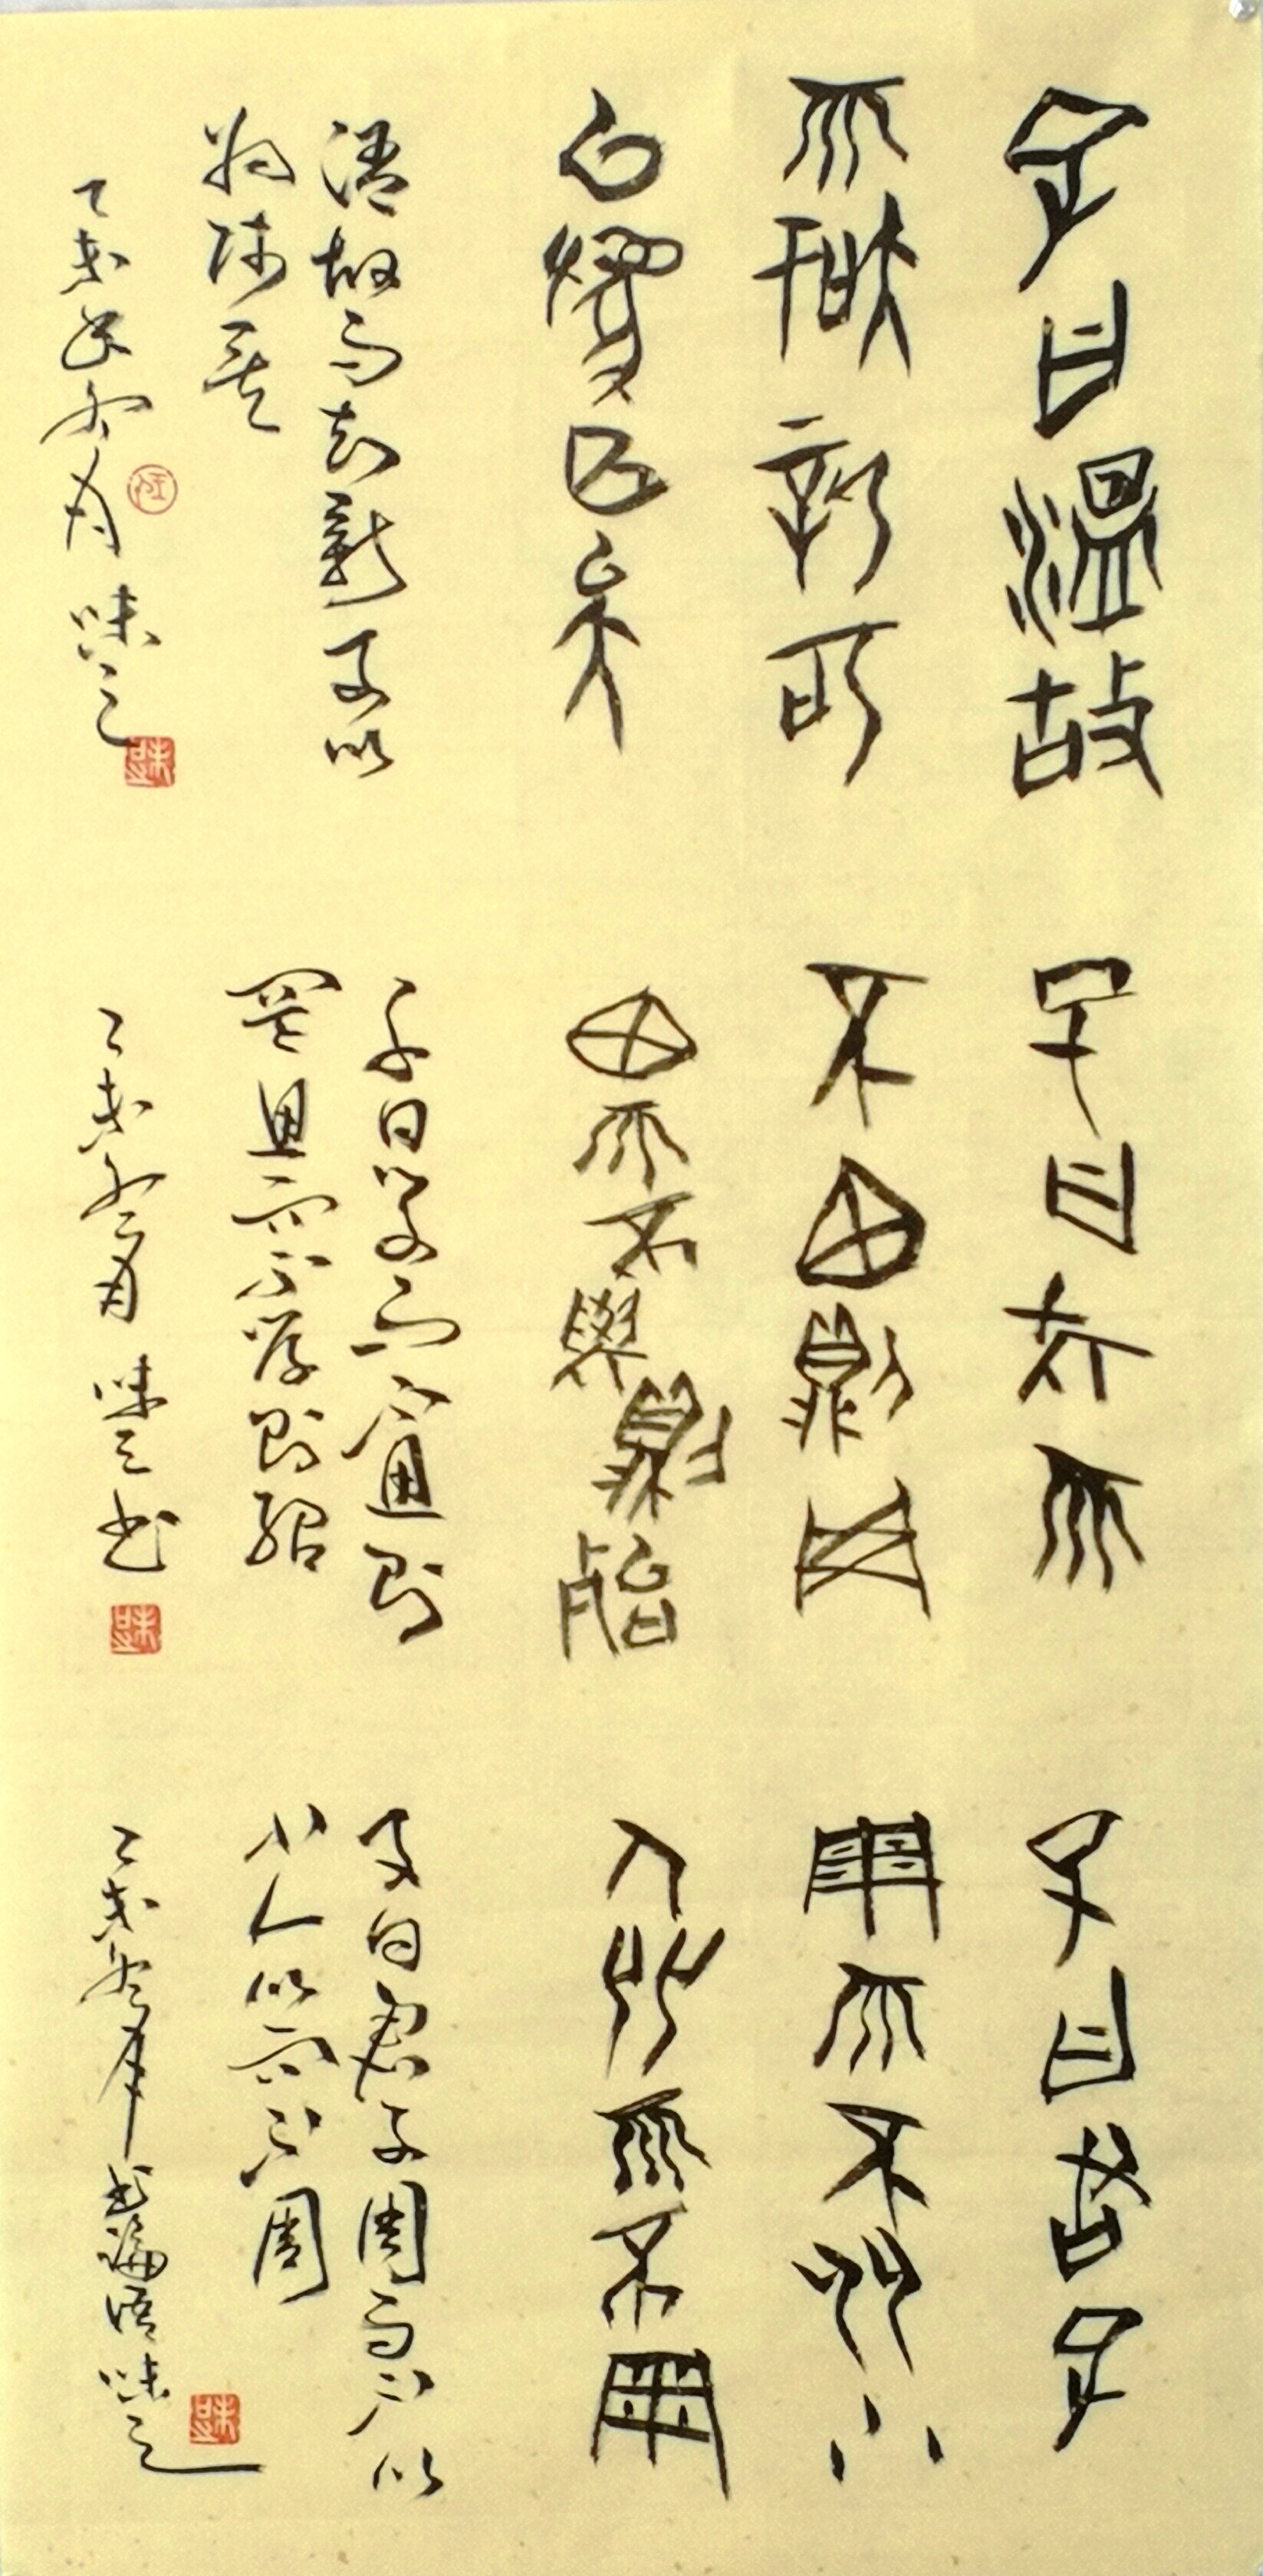 子曰溫故
而智新可
以為師矣
溫故而知新可以
為師矣
乙巳年冬月 味之
子曰學而
不思則罔
思而不學則殆
子曰學而不思則
罔思而不學則殆
乙巳冬月 味之书
子曰君子
周而不比小
人比而不周
子曰君子周而不比
小人比而不周
乙巳冬月书論語味之